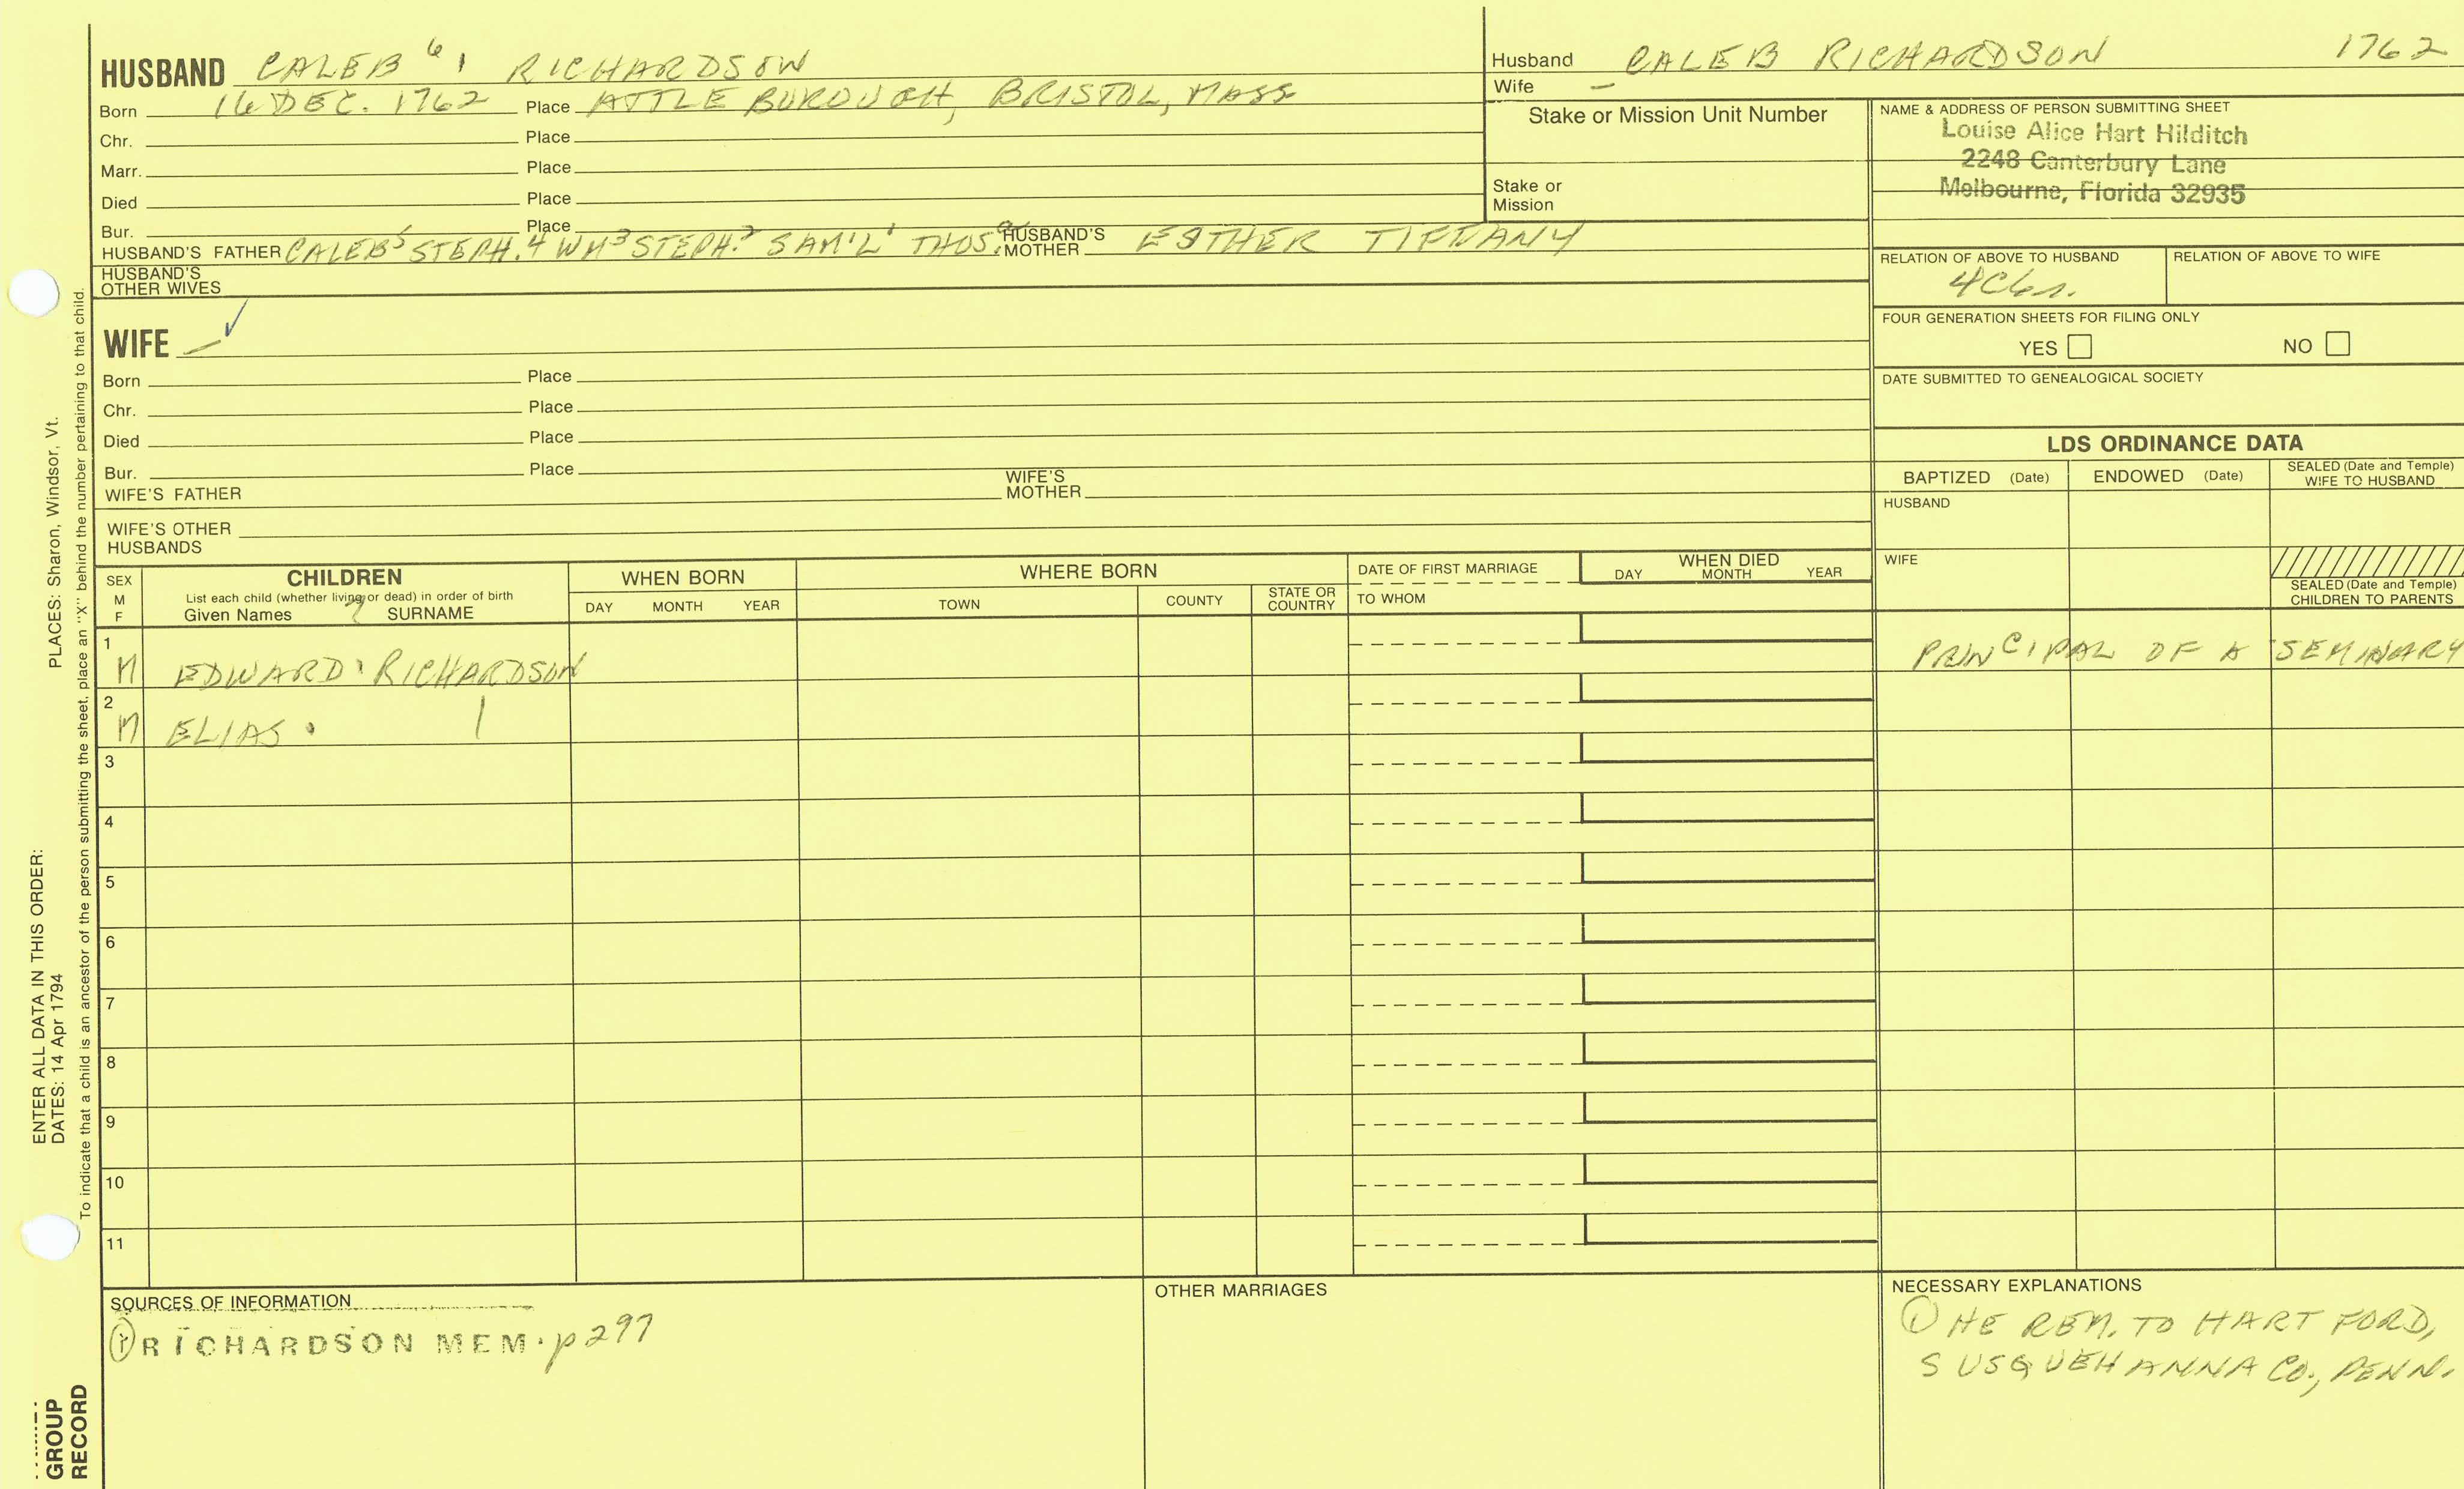 HUSBAND CALEB 6 1 RICHARDSON
Born 16 DEC. 1762 Place ATTLEBOROUGH, BRISTOL, MASS
Chr. Place
Marr. Place
Died Place
Bur. Place
HUSBAND'S FATHER CALEB 5 STEPH. 4 WM 3 STEPH. 2 SAM'L 1 THOS. a HUSBAND'S MOTHER ESTHER TIFFANY
HUSBAND'S OTHER WIVES
Husband CALEB RICHARDSON 1762
Wife –
Stake or Mission Unit Number
Stake or Mission
NAME & ADDRESS OF PERSON SUBMITTING SHEET
Louise Alice Hart Hilditch
2248 Canterbury Lane
Melbourne, Florida 32935
RELATION OF ABOVE TO HUSBAND RELATION OF ABOVE TO WIFE
FOUR GENERATION SHEETS FOR FILING ONLY
YES NO
DATE SUBMITTED TO GENEALOGICAL SOCIETY
WIFE –
Born Place
Chr. Place
Died Place
Bur. Place
WIFE'S FATHER WIFE'S MOTHER
WIFE'S OTHER HUSBANDS
LDS ORDINANCE DATA
BAPTIZED (Date) ENDOWED (Date) SEALED (Date and Temple) WIFE TO HUSBAND
HUSBAND
WIFE
SEALED (Date and Temple) CHILDREN TO PARENTS
SEX M F
CHILDREN
List each child (whether living or dead) in order of birth
Given Names SURNAME
WHEN BORN
DAY MONTH YEAR
WHERE BORN
TOWN COUNTY STATE OR COUNTRY
DATE OF FIRST MARRIAGE
TO WHOM
WHEN DIED
DAY MONTH YEAR
1 M EDWARD RICHARDSON PRINCIPAL OF A SEMINARY
2 M ELIAS
3
4
5
6
7
8
9
10
11
SOURCES OF INFORMATION
① RICHARDSON MEM. p 297
OTHER MARRIAGES
NECESSARY EXPLANATIONS
① HE REM. TO HARTFORD,
SUSQUEHANNA CO., PENN.
ENTER ALL DATA IN THIS ORDER:
DATES: 14 Apr 1794 PLACES: Sharon, Windsor, Vt.
To indicate that a child is an ancestor of the person submitting the sheet, place an "X" behind the number pertaining to that child.
GROUP
RECORD